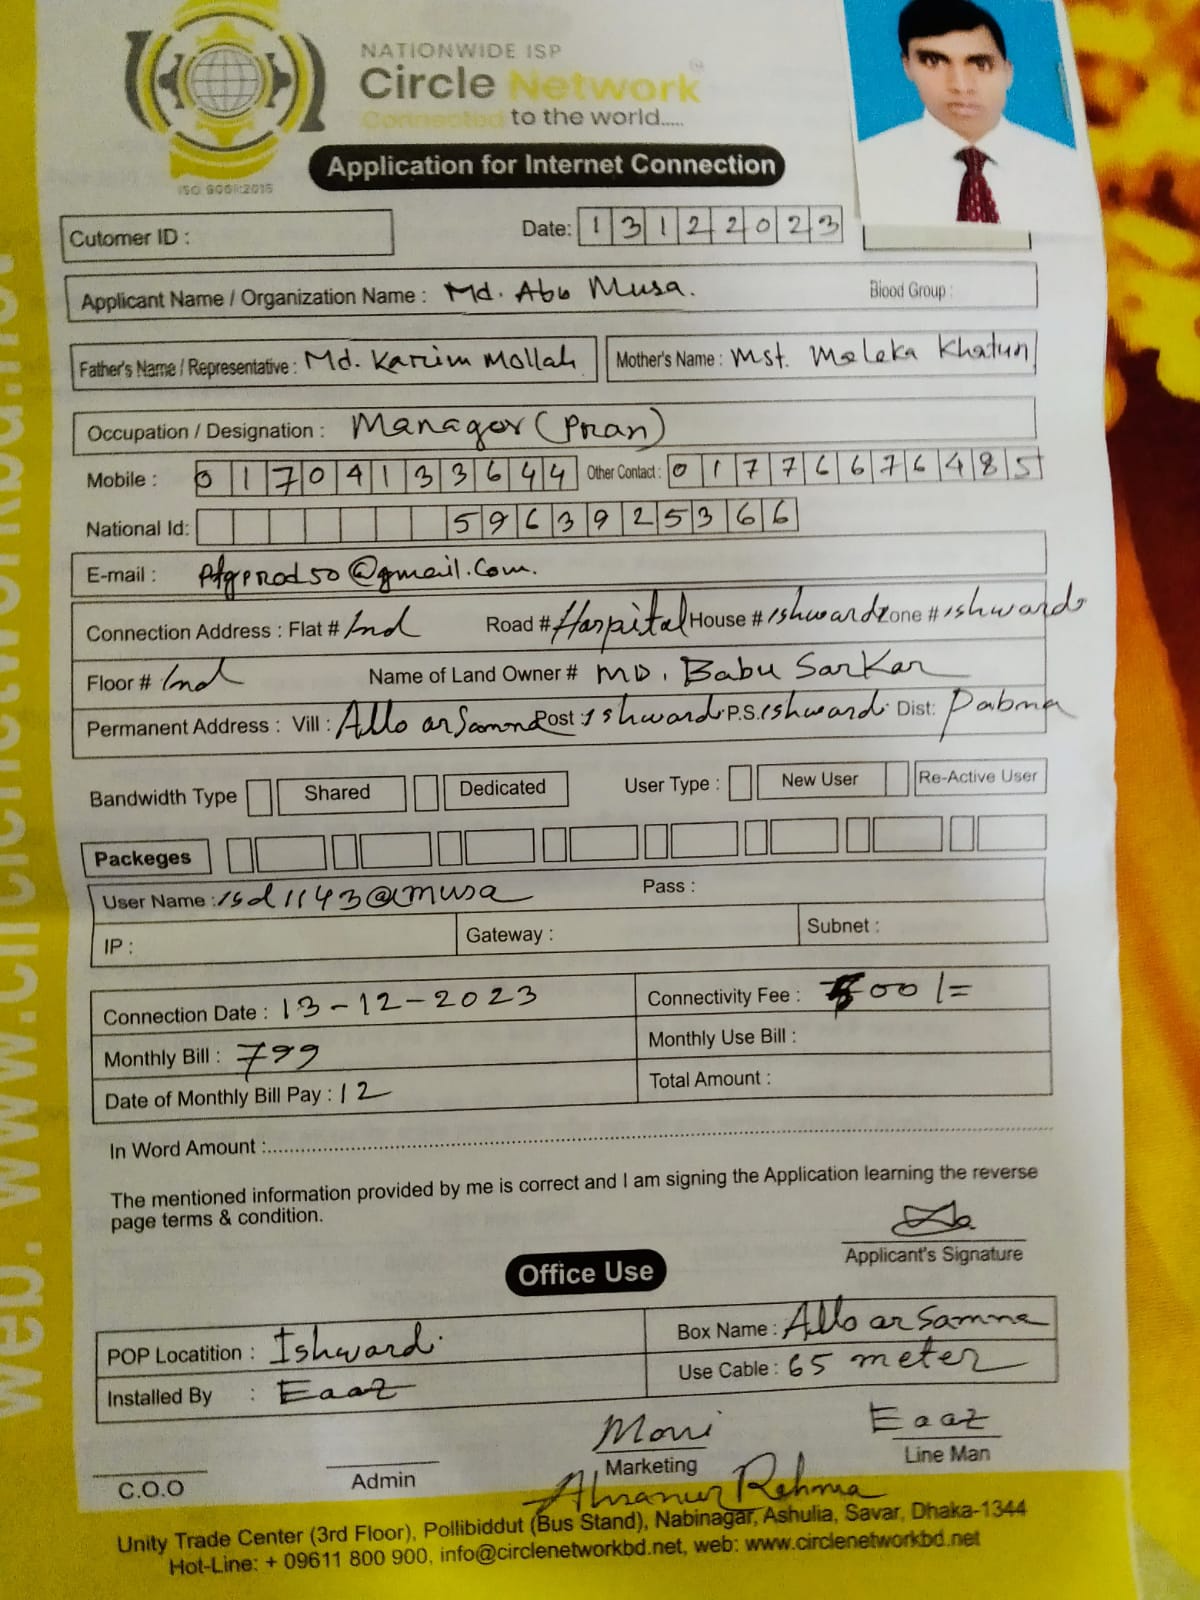 NATIONWIDE ISP
Circle Network™
Connected to the world.....
ISO 9001:2015
Application for Internet Connection
Cutomer ID :
Date: 13122023
Applicant Name / Organization Name : Md. Abu Musa. Blood Group :
Father's Name / Representative : Md. Karim Mollah Mother's Name : Mst. Maleka Khatun
Occupation / Designation : Manager (Pran)
Mobile : 01704133644 Other Contact : 017766676485
National Id: 5963925366
E-mail : Ptgprod50@gmail.com.
Connection Address : Flat # 2nd Road # Hospital House # ishwardi Zone # ishwardi
Floor # 2nd Name of Land Owner # MD. Babu Sarkar
Permanent Address : Vill : Allo ar Samne Post : ishwardi P.S. ishwardi Dist: Pabna
Bandwidth Type Shared Dedicated User Type : New User Re-Active User
Packeges
User Name : isd1143@musa Pass :
IP : Gateway : Subnet :
Connection Date : 13-12-2023 Connectivity Fee : 500/=
Monthly Bill : 799 Monthly Use Bill :
Date of Monthly Bill Pay : 12 Total Amount :
In Word Amount :
The mentioned information provided by me is correct and I am signing the Application learning the reverse
page terms & condition.
Applicant's Signature
Office Use
POP Locatition : Ishwardi Box Name : Allo ar Samne
Installed By : Eaaz Use Cable : 65 meter
Moni Eaaz
C.O.O Admin Marketing Line Man
Ahsanur Rehma
Unity Trade Center (3rd Floor), Pollibiddut (Bus Stand), Nabinagar, Ashulia, Savar, Dhaka-1344
Hot-Line: + 09611 800 900, info@circlenetworkbd.net, web: www.circlenetworkbd.net
web: www.circlenetworkbd.net